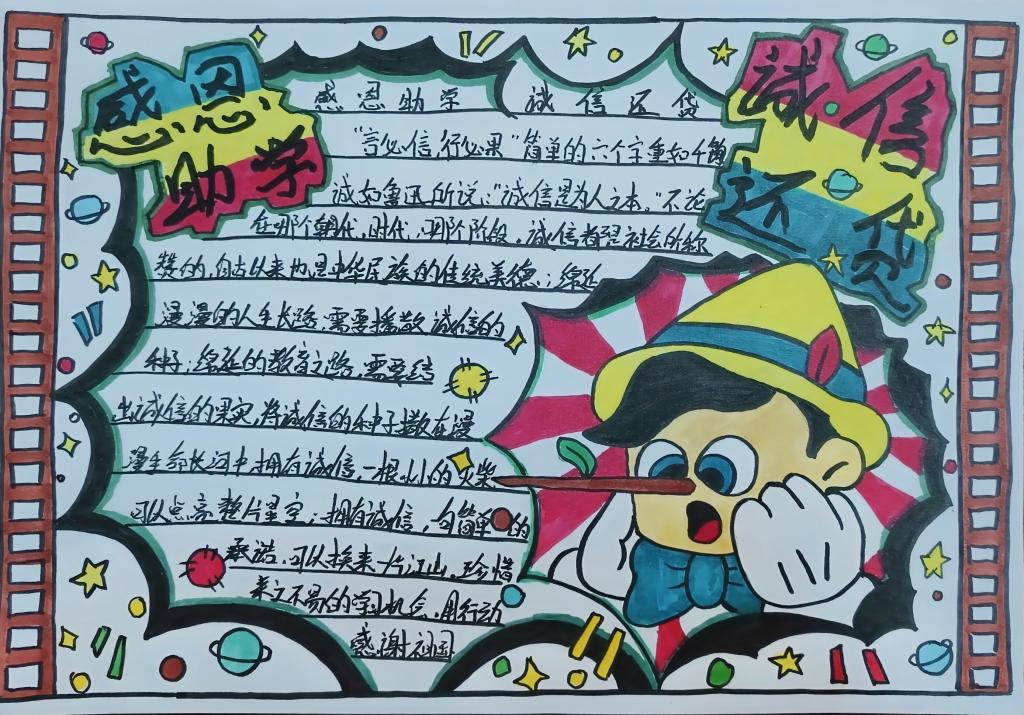 感恩
助学
诚信
还贷
感恩助学 诚信还贷
"言必信,行必果"简单的六个字重如千钧
诚如鲁迅所说:"诚信是为人之本。"不论
在哪个朝代,时代,哪个阶段,诚信都是社会所称
赞的,自古以来也是中华民族的传统美德;绵延
漫漫的人生长路,需要播散诚信的
种子;绵延的教育之路,需要结
出诚信的果实,将诚信的种子撒在漫
漫生命长河中,拥有诚信,一根小小的火柴
可以点亮整片星空;拥有诚信,句简单的
承诺,可以换来片江山,珍惜
来之不易的学习机会,用行动
感谢祖国